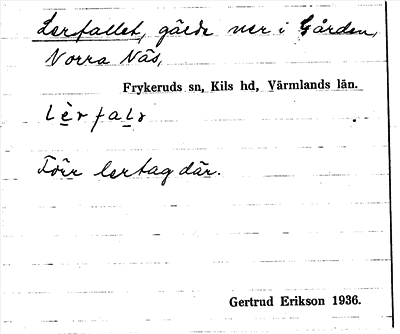 Lerfallet, gärde ner i Gården,
Norra Näs,
Frykeruds sn, Kils hd, Värmlands län.
Förr lertag där.
Gertrud Erikson 1936.